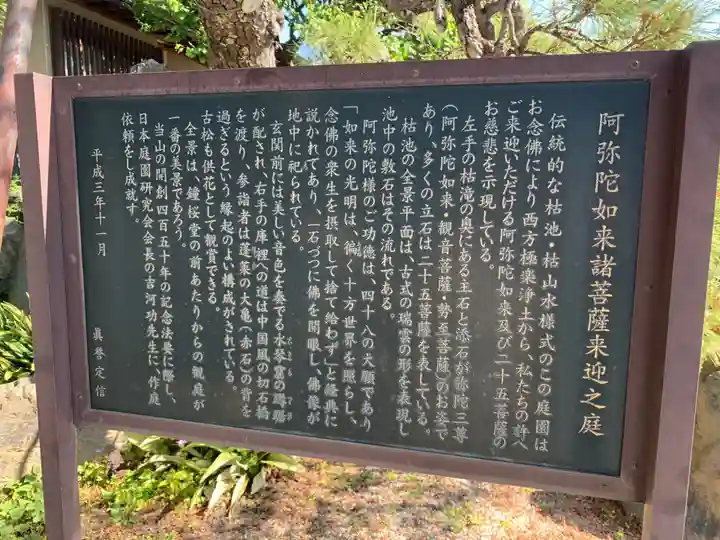 阿弥陀如来諸菩薩来迎之庭
伝統的な枯池・枯山水様式のこの庭園は
お念佛により西方極楽浄土から、私たちの許へ
ご来迎いただける阿弥陀如来及び二十五菩薩の
お慈悲を示現している。
左手の枯滝の奥にある主石と添石が弥陀三尊
(阿弥陀如来・観音菩薩・勢至菩薩)のお姿で
あり、多くの立石は二十五菩薩を表している。
枯池の全景平面は、古式の瑞雲の形を表現し
池中の敷石はその流れである。
阿弥陀様のご功徳は、四十八の大願であり
「如来の光明は、徧く十方世界を照らし、
念佛の衆生を摂取して捨て給わず」と経典に
説かれてあり、一石づつに佛を開眼し、佛像が
地中に祀られている。
玄関前には美しい音色を奏でる水琴窟の蹲踞
が配され、右手の庫裡への道は中国風の切石橋
を渡り、参詣者は蓬莱の大亀(赤石)の背を
過ぎるという縁起のよい構成がされている。
古松も供花として観賞できる。
全景は、鐘桜堂の前あたりからの観庭が
一番の美景であろう。
当山の開創四百五十年の記念法要に際し、
日本庭園研究会会長の吉河功先生に、作庭
依頼をし成就す。
平成三年十一月
眞誉定信